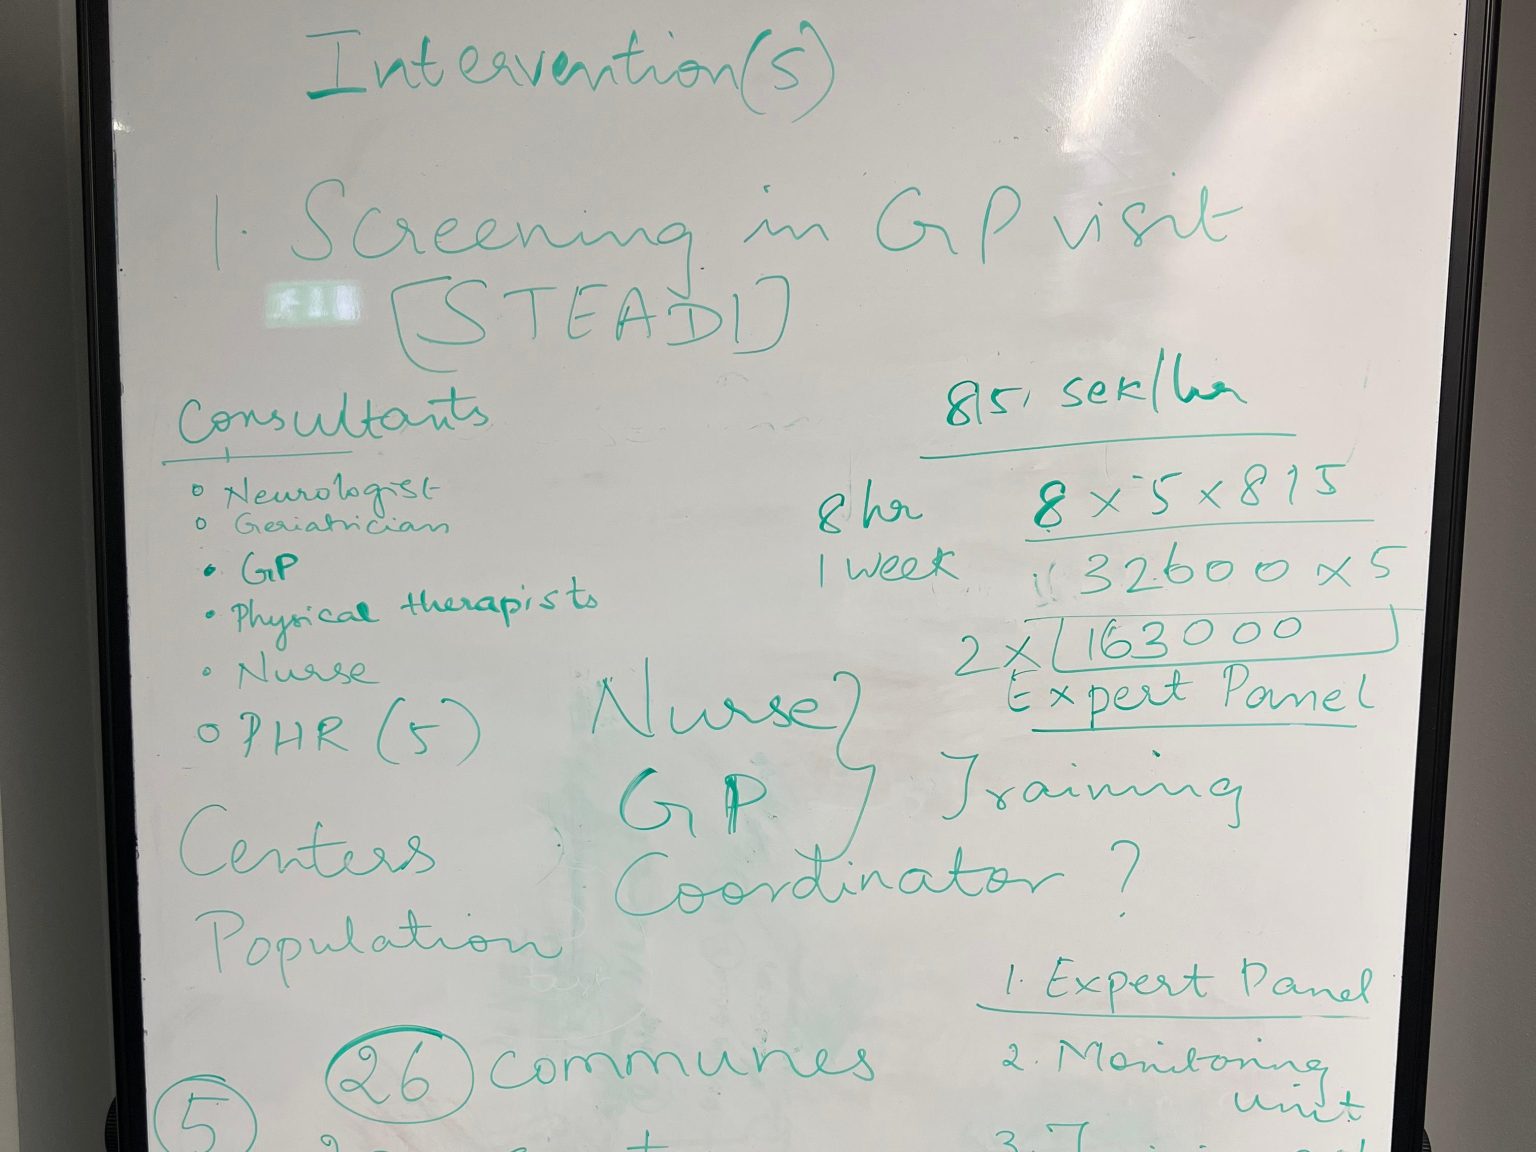 Intervention(s)
1. Screening in GP visit
[STEADI]
Consultants
Neurologist
Geriatrician
GP
Physical therapists
Nurse
PHR (5)
815, sek/hr
8 hr 8 x 5 x 815
1 week 32600 x 5
2 x 163000
Expert Panel
Nurse
GP
Training
Coordinator ?
Centers
Population
26 communes
5
1. Expert Panel
2. Monitoring
unit
3.